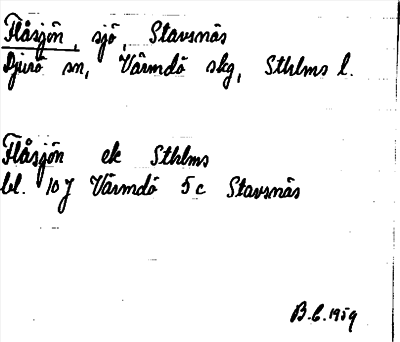 Flåsjön, sjö, Stavsnäs
Djurö sn, Värmdö skg, Sthlms l.
Flåsjön ek Sthlms
bl. 10 J Värmdö 5 c Stavsnäs
B.C. 1959